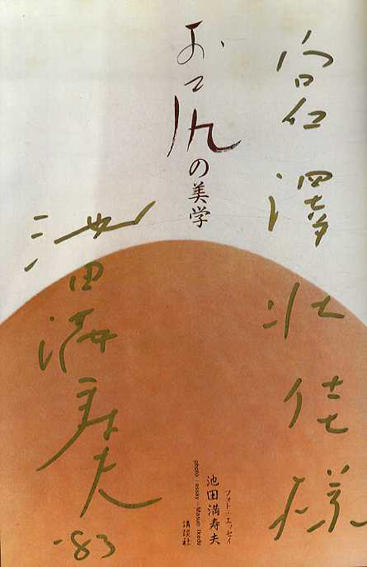 宮澤壮佳様
お尻の美学
フォト・エッセイ
池田満寿夫
photo・essay・Masuo Ikeda
講談社
池田満寿夫
-83